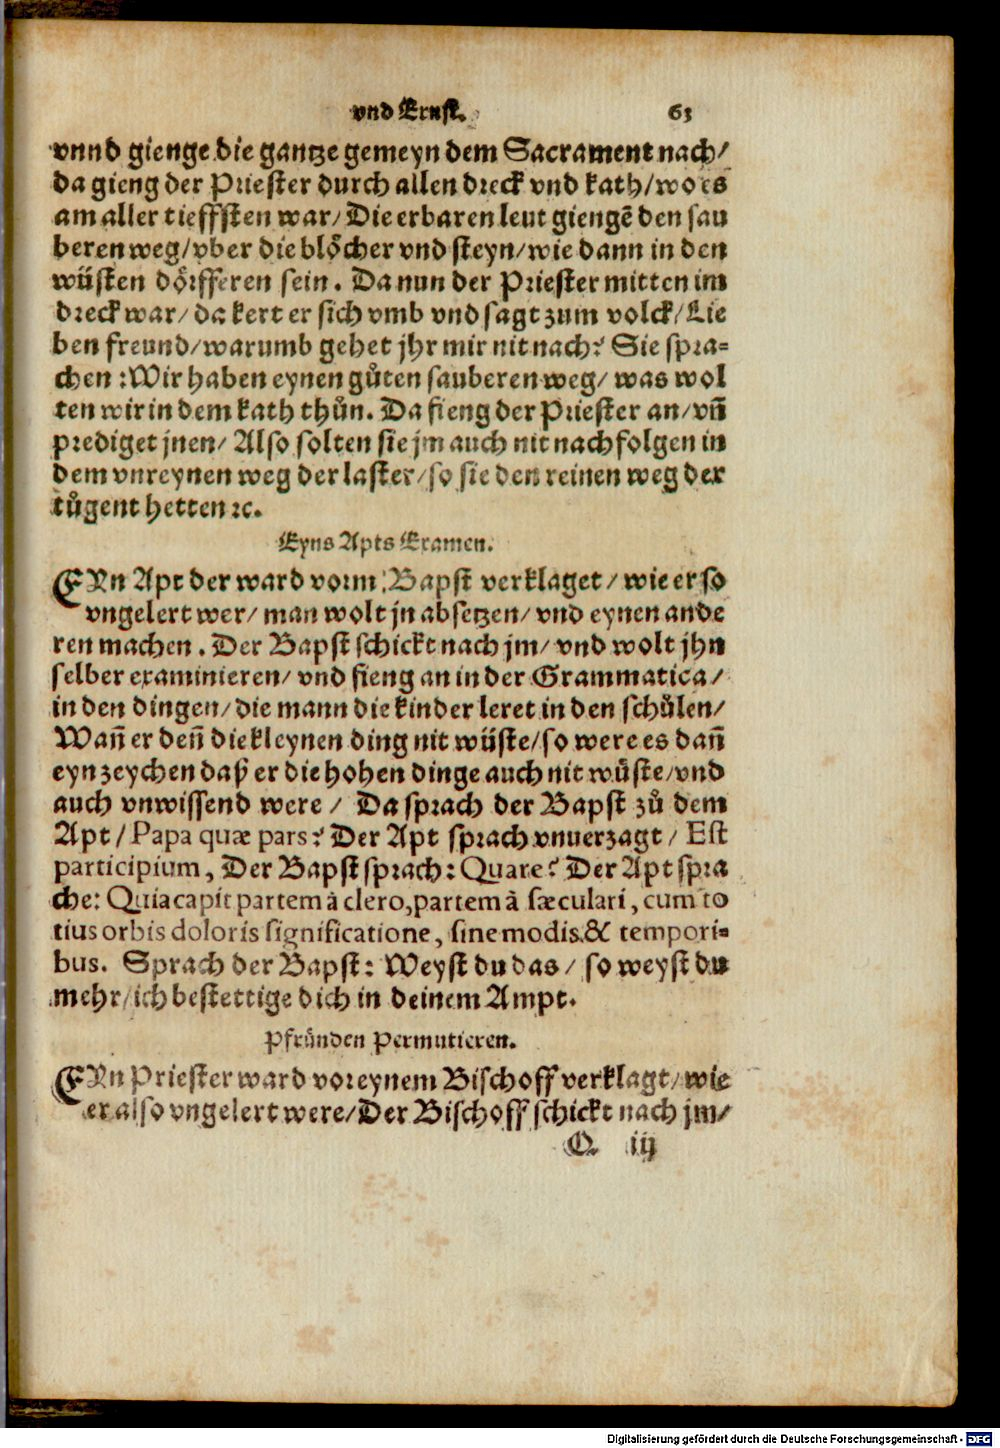 vnd Ernst. 63
vnnd gienge die gantze gemeyn dem Sacrament nach/
da gieng der Priester durch allen dreck vnd kath/wo es
am aller tieffsten war/ Die erbaren leut giengẽ den sau
beren weg/vber die blöcher vnd steyn/wie dann in den
wüsten dörfferen sein. Da nun der Priester mitten im
dreck war/ da kert er sich vmb vnd sagt zum volck/ Lie
ben freund/warumb gehet jhr mir nit nach? Sie spra-
chen :Wir haben eynen gůten sauberen weg/ was wol
ten wir in dem kath thůn. Da fieng der Priester an/vñ
prediget jnen/ Also solten sie jm auch nit nachfolgen in
dem vnreynen weg der laster/so sie den reinen weg der
tůgent hetten ꝛc.
Eyns Apts Examen.
EYn Apt der ward vorm Bapst verklaget/ wie er so
vngelert wer/ man wolt jn absetzen/ vnd eynen ande
ren machen. Der Bapst schickt nach jm/ vnd wolt jhn
selber examinieren/ vnd fieng an in der Grammatica/
in den dingen/die mann die kinder leret in den schůlen/
Wañ er deñ die kleynen ding nit wüste/so were es dañ
eyn zeychen daß er die hohen dinge auch nit wüste/vnd
auch vnwissend were/ Da sprach der Bapst zů dem
Apt/ Papa quæ pars? Der Apt sprach vnuerzagt/ Est
participium, Der Bapst sprach: Quare? Der Apt spra
che: Quia capit partem à clero,partem à sæculari, cum to
tius orbis doloris significatione, sine modis & tempori-
bus. Sprach der Bapst: Weyst du das/ so weyst du
mehr/ich bestettige dich in deinem Ampt.
Pfründen Permutieren.
EYn Priester ward vor eynem Bischoff verklagt/ wie
er also vngelert were/Der Bischoff schickt nach jm/
Q iij
Digitalisierung gefördert durch die Deutsche Forschungsgemeinschaft - DFG